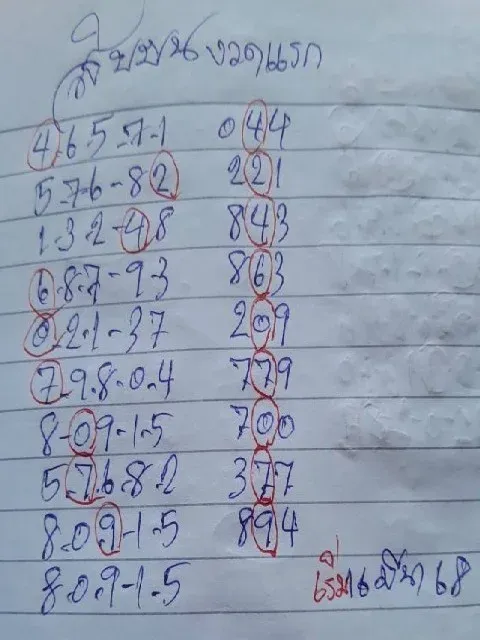 สิบบน งวดแรก
4.6.5-7-1 044
5.7-6-82 221
1.3.2-4.8 843
6.8.7-93 863
0.2.1-37 209
7.9.8-0.4 779
8-09-1-5 700
5.7.6.8.2 377
8.09-1-5 894
8.0.9-1-5
เริ่ม 16 มีนา 68